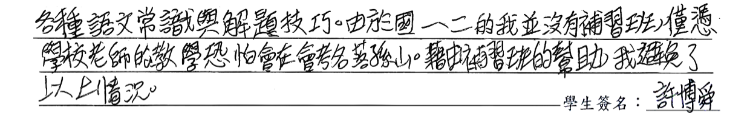 各種語文常識與解題技巧。由於國一、二的我並沒有補習班,僅憑
學校老師的教學恐怕會在會考名落孫山。藉由補習班的幫助,我避免了
以上情況。
學生簽名：許博舜